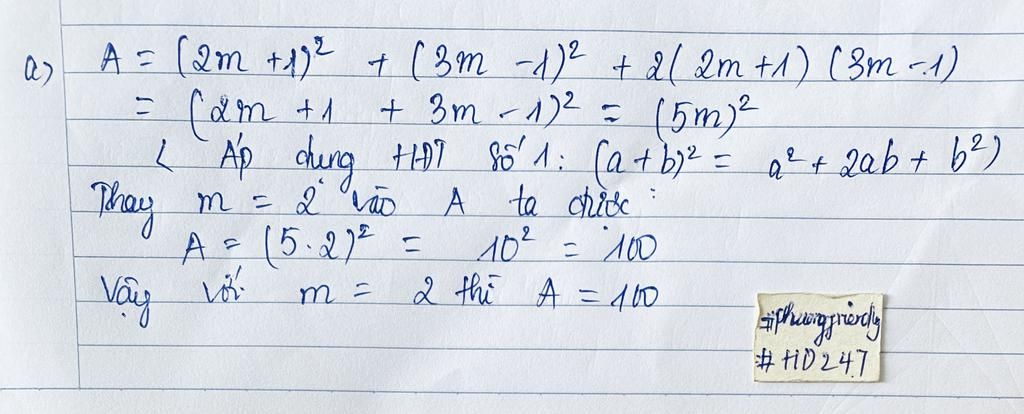 a) A = (2m + 1)² + (3m - 1)² + 2(2m + 1) (3m - 1)
= (2m + 1 + 3m - 1)² = (5m)²
( Áp dụng HĐT số 1: (a + b)² = a² + 2ab + b²)
Thay m = 2 vào A ta được :
A = (5.2)² = 10² = 100
Vậy với m = 2 thì A = 100
#phuongfriendly
# HD247